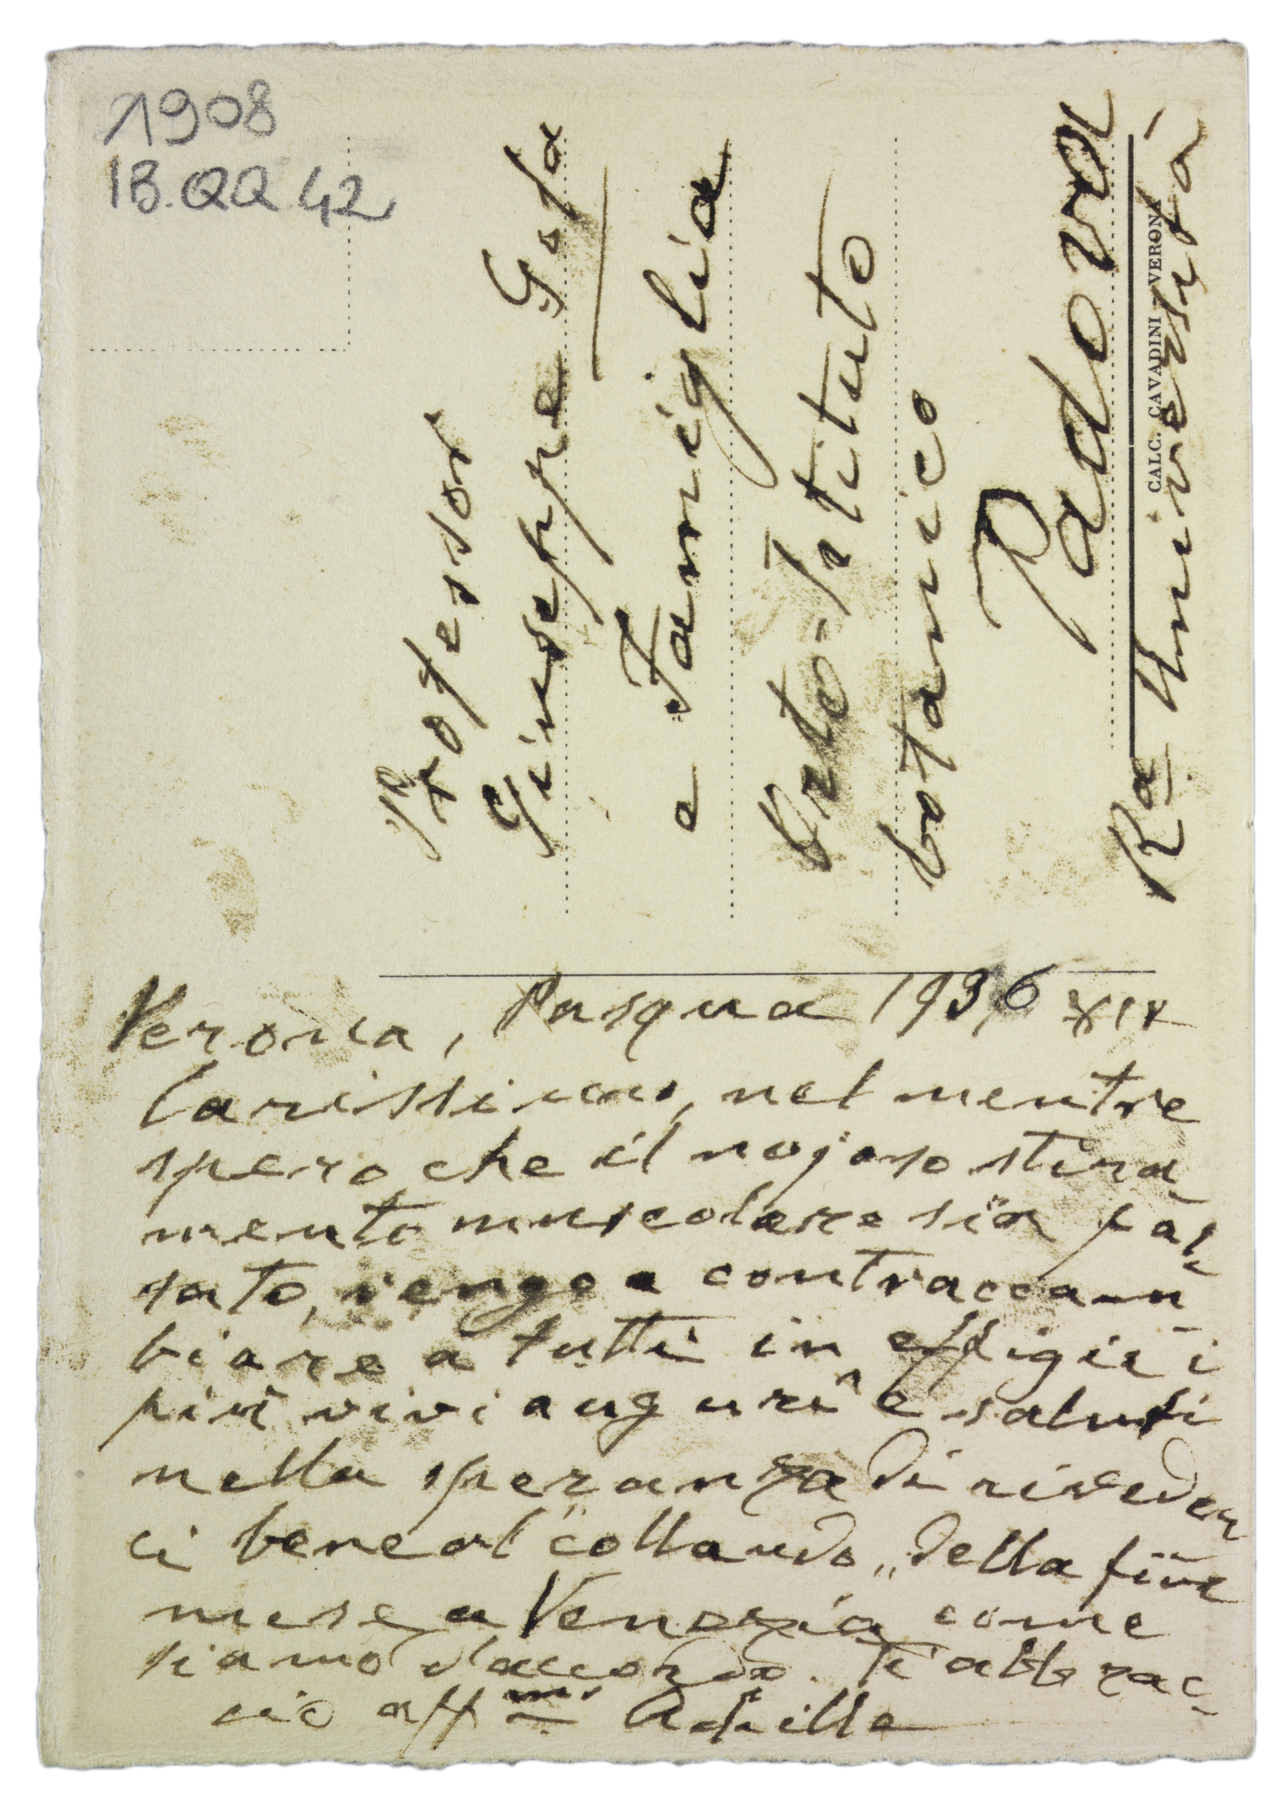 1908
IB.QQ.42
Professor
Giuseppe Gola
e Famiglia
Orto-Istituto
botanico
Padova
Ra Università
CALC. CAVADINI - VERONA
Verona, Pasqua 1936 XIV
Carissimo, nel mentre
spero che il nojoso stira
mento muscolare sia pas-
sato, vengo a contraccam
biare a tutti in effigie i
più vivi auguri e saluti
nella speranza di riveder
ci bene al "collaudo" della fine
mese a Venezia come
siamo d'accordo. Ti abbrac-
cio aff.mo Achille